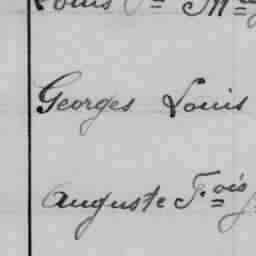 Louis
Georges Louis
Auguste F.ois